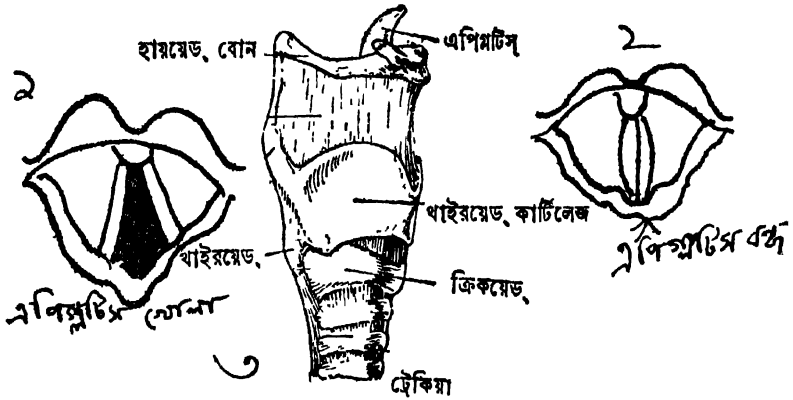 হায়য়েড্ বোন
এপিগ্লটিস্
২
২
থাইরয়েড্ কার্টিলেজ
থাইরয়েড্
ক্রিকয়েড্
এপিগ্লটিস বন্ধ
এপিগ্লটিস খোলা
৩
ট্রেকিয়া